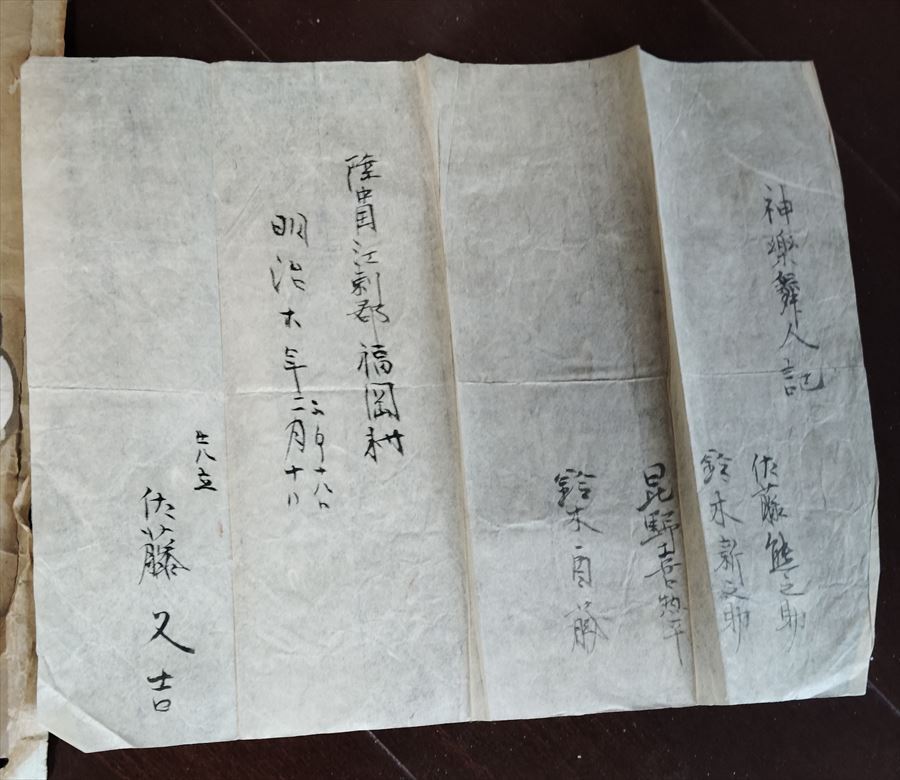 神樂舞人記
佐藤熊之助
鈴木新之助
昆野喜惣平
鈴木酉藤
陸中国江刺郡福岡村
明治 年二月十八
十八日
佐藤又吉